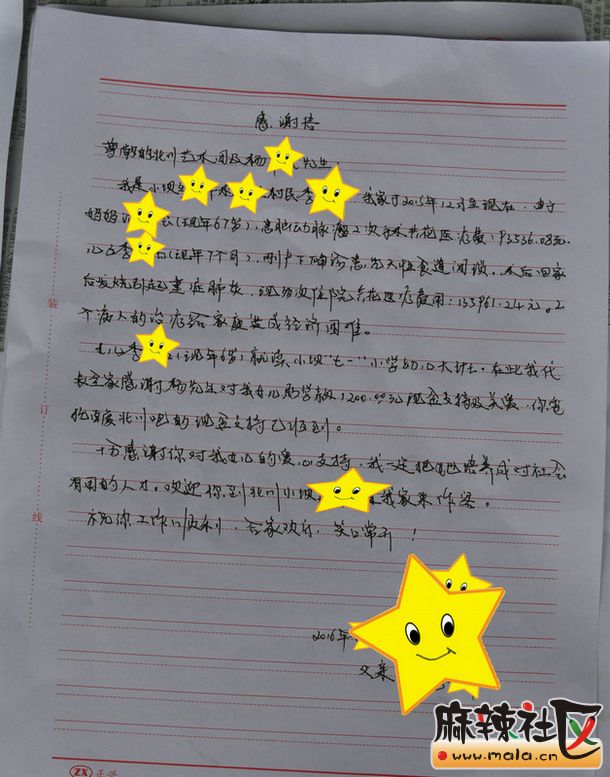 感谢信
尊敬的北川艺术团及杨 先生:
我是小坝 村民李 我家于2015年12月至现在,由于
妈妈 (现年67岁),患脑动脉瘤2次手术共花医疗费:93536.08元.
儿子李 (现年7个月),刚产下确诊患先天性食道闭锁.术后回家
后发烧引起重症肺炎,现 次住院共花医疗费用:133961.24元。2
个病人的治疗给家庭造成经济困难。
女儿李 (现年6岁)就读小坝"七一"小学幼儿大班.在此我代
表全家感谢杨先生对我女儿助学款1200.00元现金支持及关爱.你
北川吧的现金支持已收到。
十分感谢你对我女儿的爱心支持,我一定把她培养成对社会
有用的人才。欢迎你到北川小坝 我家来作客。
祝你工作顺利,合家欢乐,笑口常开!
2016年
父亲
装
订
线
ZX
麻辣社区
www.mala.cn